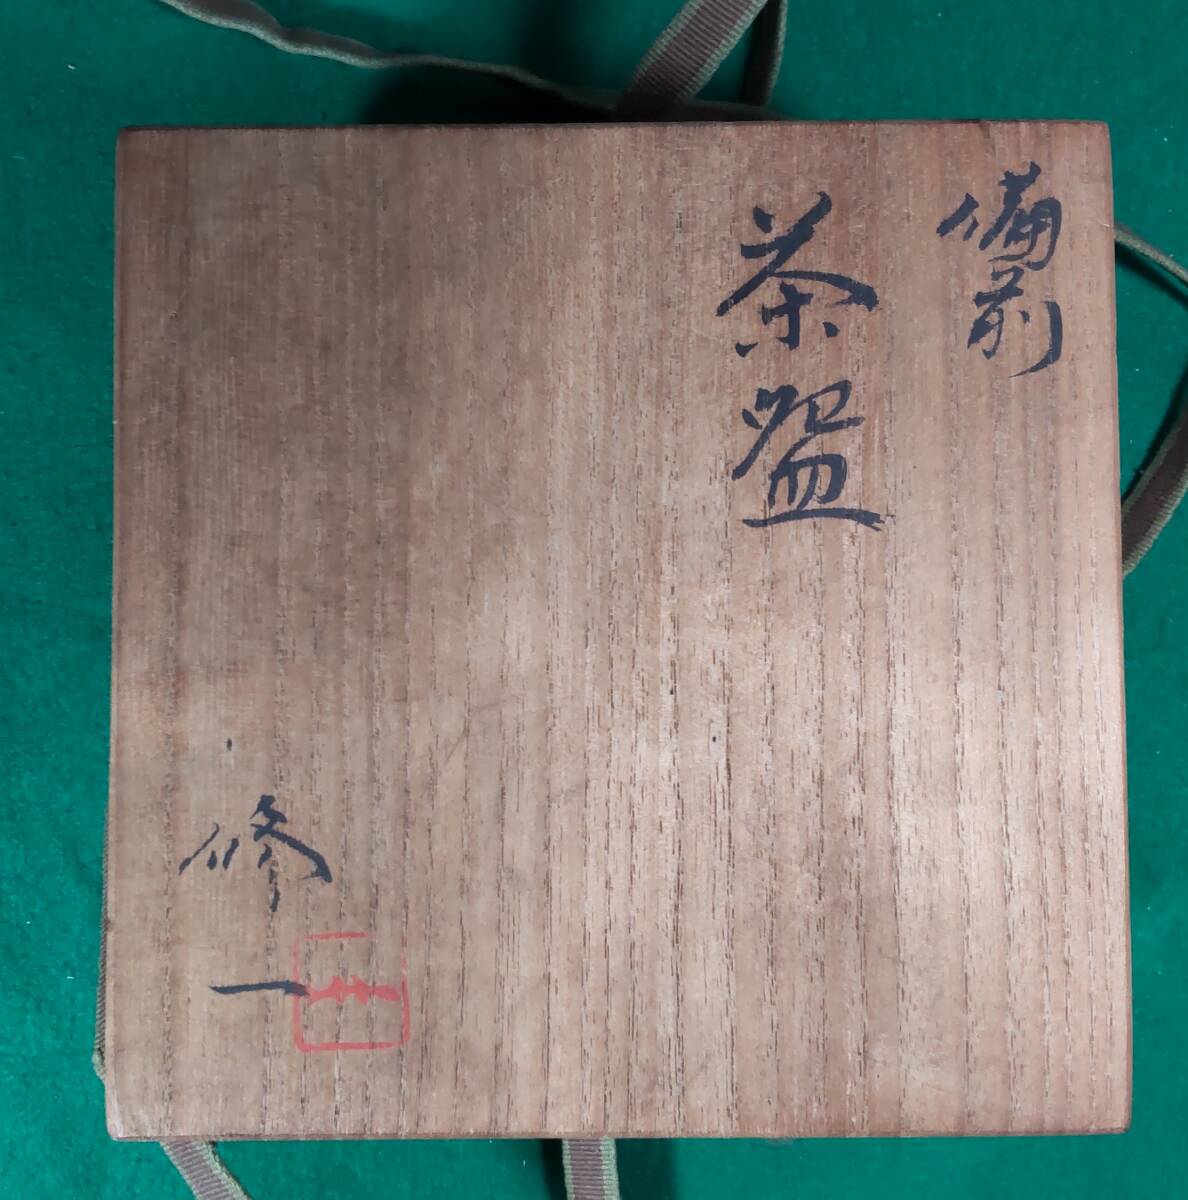 備前
茶盌
修一